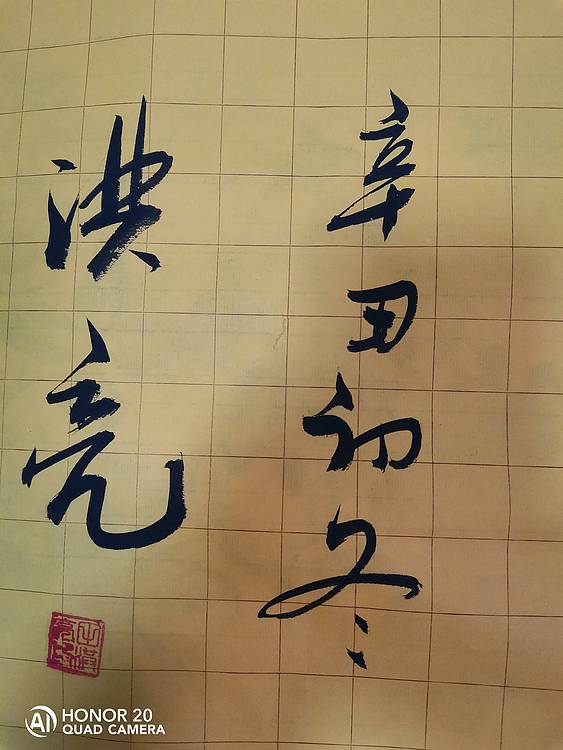 辛丑初冬
洪亮
AI HONOR 20
QUAD CAMERA